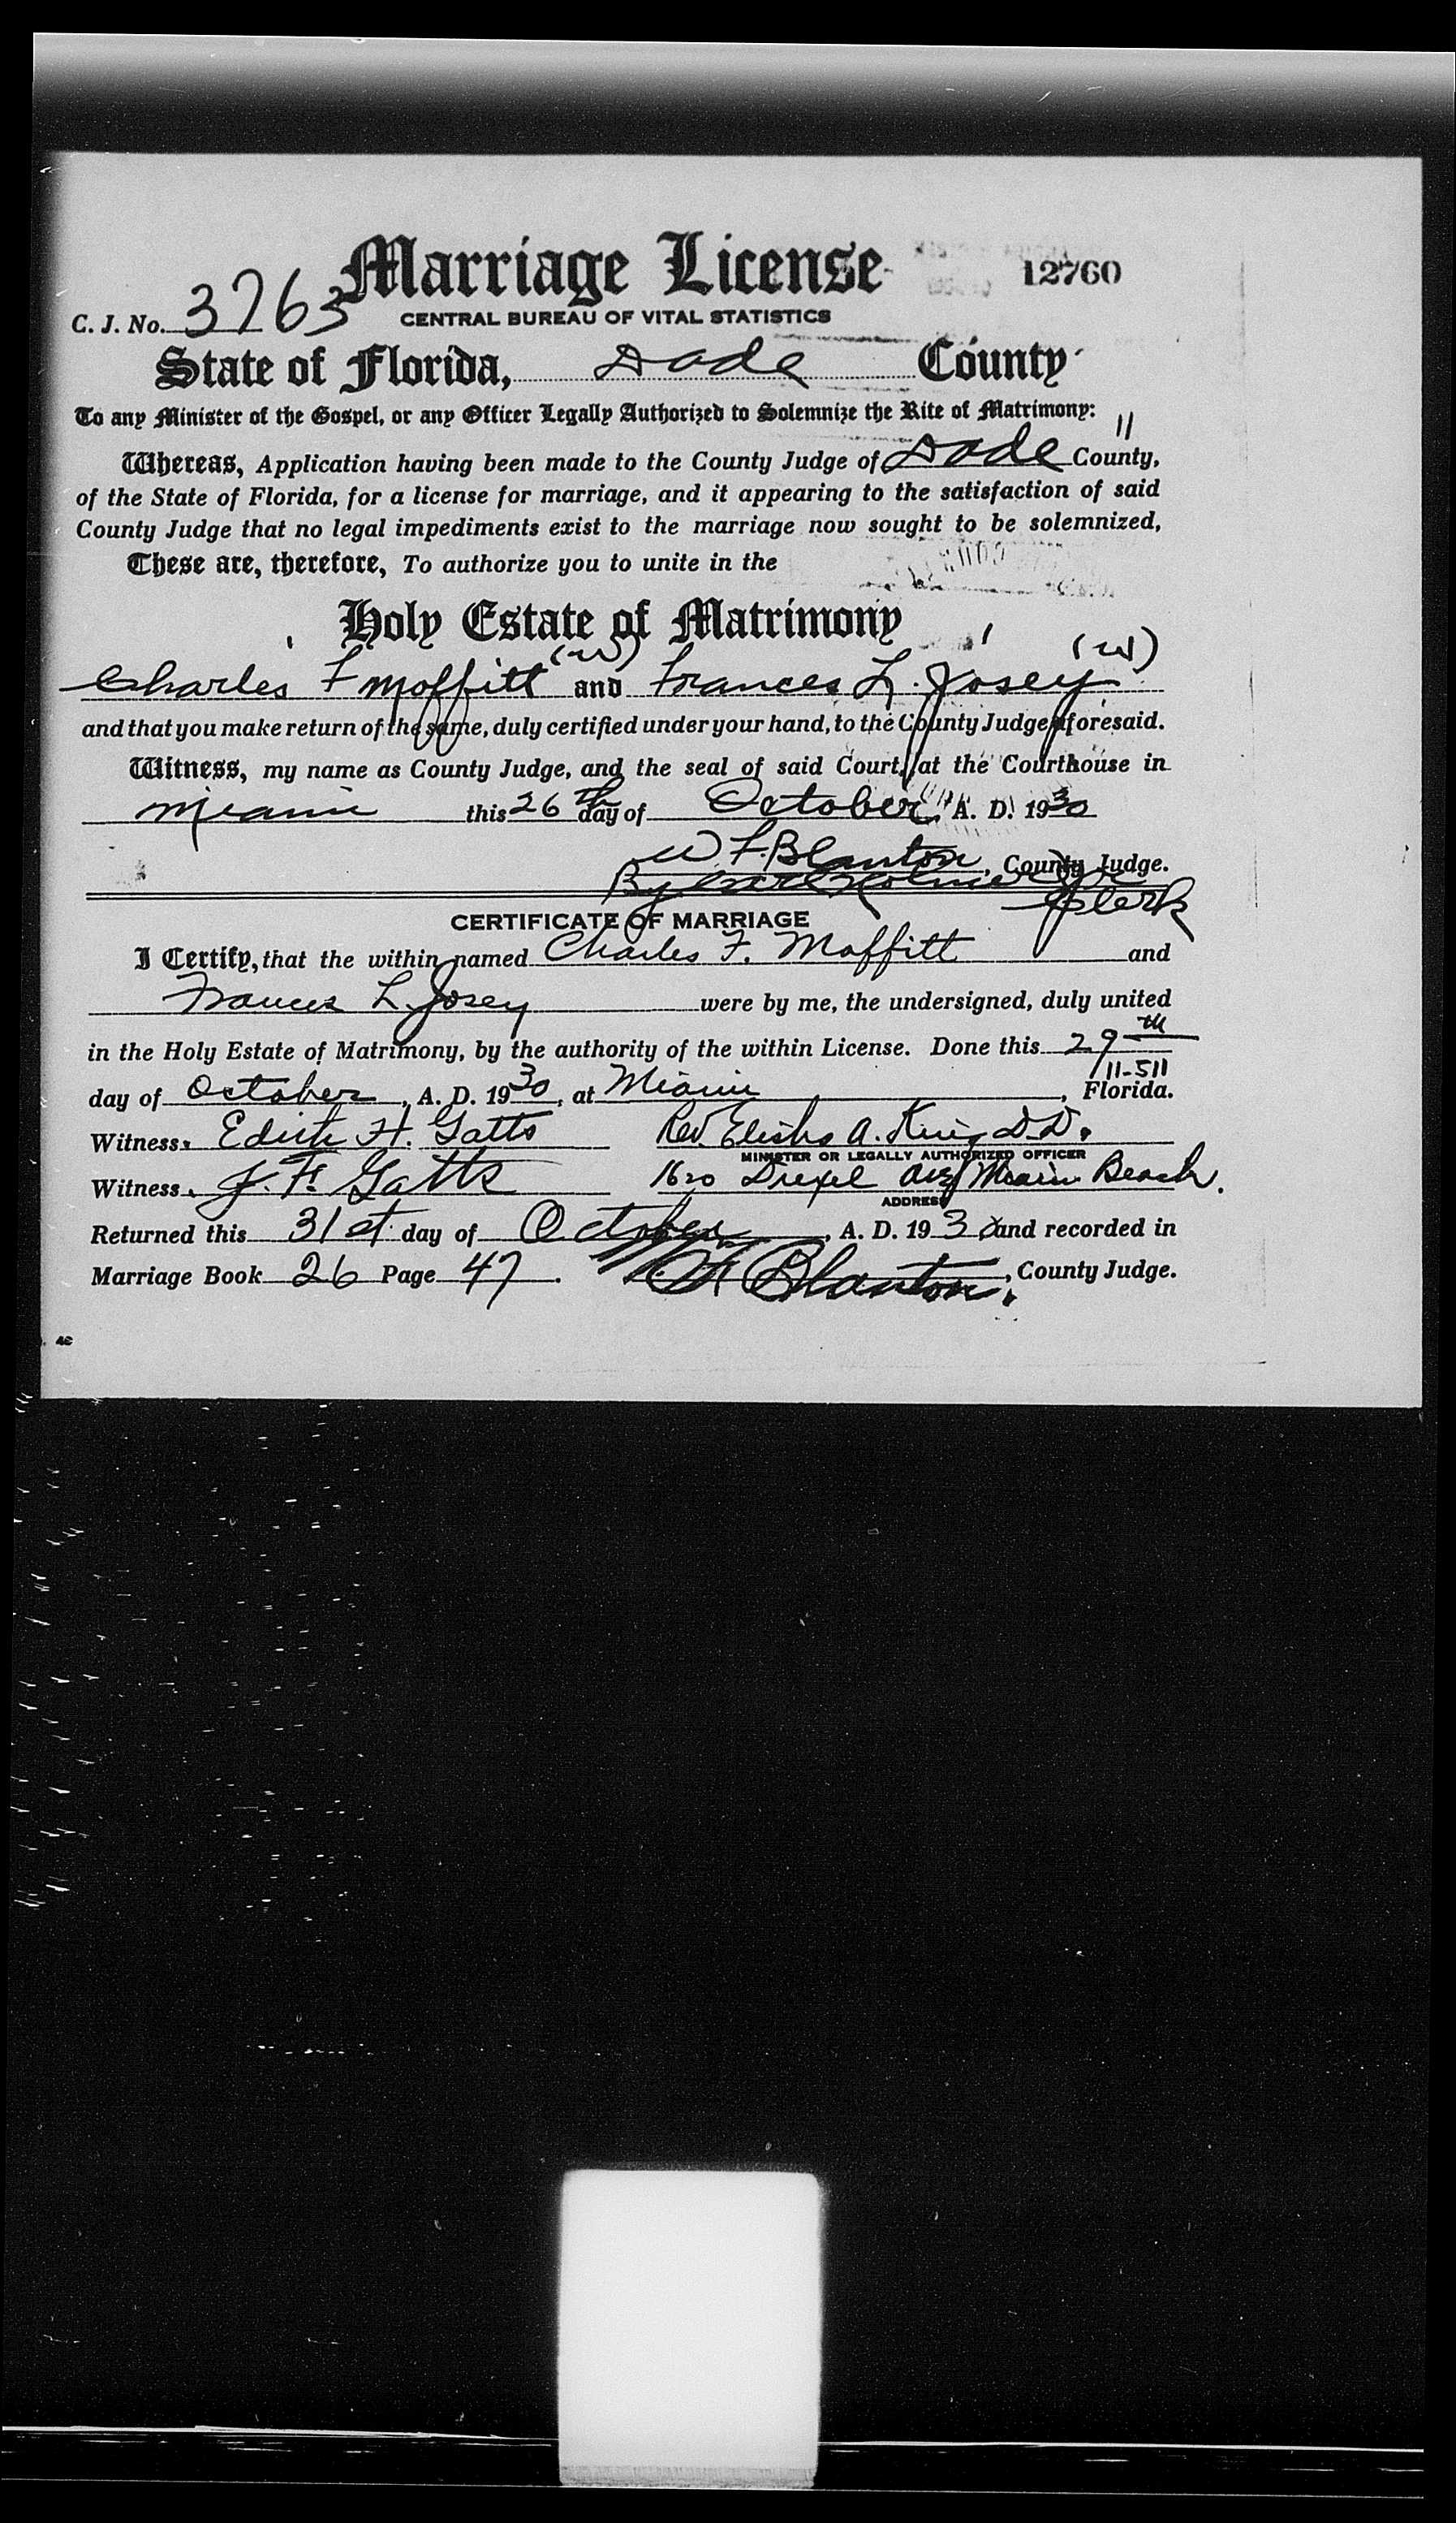 Marriage License
12760
C. J. No. 3763
CENTRAL BUREAU OF VITAL STATISTICS
State of Florida, Dade County
To any Minister of the Gospel, or any Officer Legally Authorized to Solemnize the Rite of Matrimony:
11
Whereas, Application having been made to the County Judge of Dade County,
of the State of Florida, for a license for marriage, and it appearing to the satisfaction of said
County Judge that no legal impediments exist to the marriage now sought to be solemnized,
These are, therefore, To authorize you to unite in the
Holy Estate of Matrimony
Charles F Moffitt (W) and Frances L. Josey (W)
and that you make return of the same, duly certified under your hand, to the County Judge aforesaid.
Witness, my name as County Judge, and the seal of said Court, at the Courthouse in
Miami this 26th day of October, A. D. 1930
W F. Blanton, County Judge.
By Clerk
CERTIFICATE OF MARRIAGE
I Certify, that the within named Charles F. Moffitt and
Frances L. Josey were by me, the undersigned, duly united
in the Holy Estate of Matrimony, by the authority of the within License. Done this 29th
11-511
day of October, A. D. 1930, at Miami, Florida.
Witness. Edith H. Gatts Rev. Elisha A. King D.D.
MINISTER OR LEGALLY AUTHORIZED OFFICER
Witness. J. F. Gatts 1620 Drexel Ave Miami Beach.
ADDRESS
Returned this 31st day of October, A. D. 1930 and recorded in
Marriage Book 26 Page 47. W. F. Blanton, County Judge.